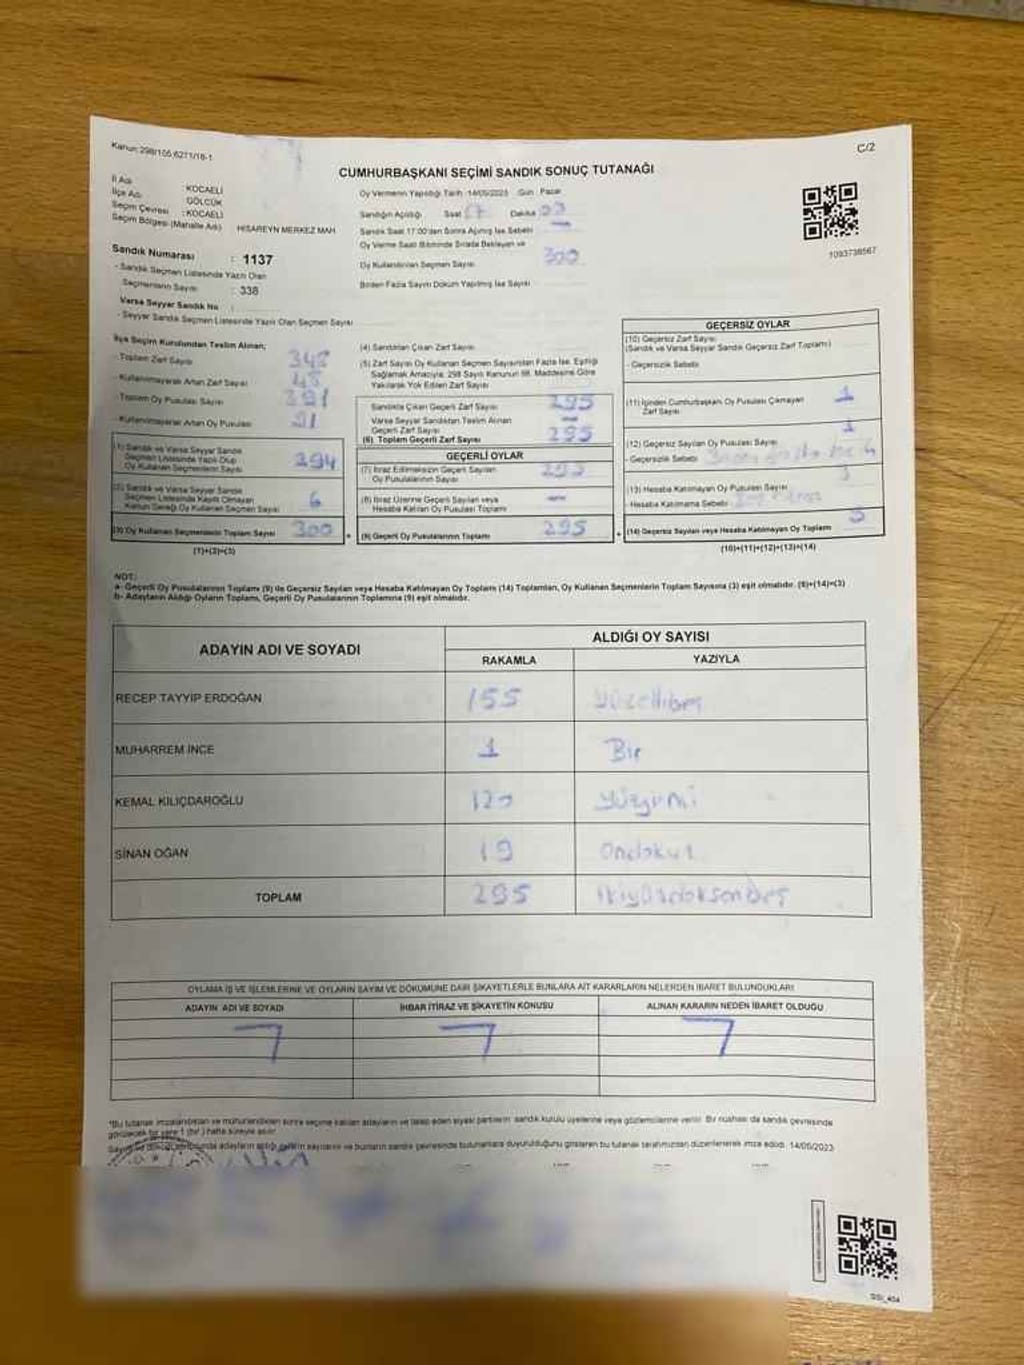 Kanun: 298/105 6271/18-1
C/2
CUMHURBAŞKANI SEÇİMİ SANDIK SONUÇ TUTANAĞI
İl Adı : KOCAELİ
İlçe Adı : GÖLCÜK
Seçim Çevresi : KOCAELİ
Seçim Bölgesi (Mahalle Adı) HISAREYN MERKEZ MAH
Oy Vermenin Yapıldığı Tarih :14/05/2023 Gün : Pazar
Sandığın Açıldığı Saat 17 Dakika
Sandık Saat 17:00'den Sonra Açılmış İse Sebebi
Oy Verme Saati Bitiminde Sırada Bekleyen ve
Oy Kullandırılan Seçmen Sayısı 300
Birden Fazla Sayım Döküm Yapılmış İse Sayısı
1093738567
Sandık Numarası : 1137
- Sandık Seçmen Listesinde Yazılı Olan
Seçmenlerin Sayısı : 338
Varsa Seyyar Sandık No :
- Seyyar Sandık Seçmen Listesinde Yazılı Olan Seçmen Sayısı
İlçe Seçim Kurulundan Teslim Alınan;
- Toplam Zarf Sayısı 348
- Kullanılmayarak Artan Zarf Sayısı 48
- Toplam Oy Pusulası Sayısı 391
- Kullanılmayarak Artan Oy Pusulası 91
(1) Sandık ve Varsa Seyyar Sandık
Seçmen Listesinde Yazılı Olup
Oy Kullanan Seçmenlerin Sayısı 294
(2) Sandık ve Varsa Seyyar Sandık
Seçmen Listesinde Kayıtlı Olmayan
Kanun Gereği Oy Kullanan Seçmen Sayısı 6
(3) Oy Kullanan Seçmenlerin Toplam Sayısı 300
(1)+(2)=(3)
(4) Sandıktan Çıkan Zarf Sayısı
(5) Zarf Sayısı Oy Kullanan Seçmen Sayısından Fazla İse, Eşitliği
Sağlamak Amacıyla, 298 Sayılı Kanunun 98. Maddesine Göre
Yakılarak Yok Edilen Zarf Sayısı
Sandıkta Çıkan Geçerli Zarf Sayısı 295
Varsa Seyyar Sandıktan Teslim Alınan
Geçerli Zarf Sayısı
(6) Toplam Geçerli Zarf Sayısı 295
GEÇERLİ OYLAR
(7) İtiraz Edilmeksizin Geçerli Sayılan
Oy Pusulalarının Sayısı 295
(8) İtiraz Üzerine Geçerli Sayılan veya
Hesaba Katılan Oy Pusulası Toplamı
(9) Geçerli Oy Pusulalarının Toplamı 295
GEÇERSİZ OYLAR
(10) Geçersiz Zarf Sayısı
(Sandık ve Varsa Seyyar Sandık Geçersiz Zarf Toplamı)
- Geçersizlik Sebebi
(11) İçinden Cumhurbaşkanı Oy Pusulası Çıkmayan
Zarf Sayısı 1
(12) Geçersiz Sayılan Oy Pusulası Sayısı 1
- Geçersizlik Sebebi
(13) Hesaba Katılmayan Oy Pusulası Sayısı 3
- Hesaba Katılmama Sebebi
(14) Geçersiz Sayılan veya Hesaba Katılmayan Oy Toplamı 5
(10)+(11)+(12)+(13)=(14)
NOT:
a- Geçerli Oy Pusulalarının Toplamı (9) ile Geçersiz Sayılan veya Hesaba Katılmayan Oy Toplamı (14) Toplamları, Oy Kullanan Seçmenlerin Toplam Sayısına (3) eşit olmalıdır. (9)+(14)=(3)
b- Adayların Aldığı Oyların Toplamı, Geçerli Oy Pusulalarının Toplamına (9) eşit olmalıdır.
ADAYIN ADI VE SOYADI
ALDIĞI OY SAYISI
RAKAMLA YAZIYLA
RECEP TAYYİP ERDOĞAN 155 yüzellibeş
MUHARREM İNCE 1 Bir
KEMAL KILIÇDAROĞLU 120 yüzyirmi
SİNAN OĞAN 19 Ondokuz
TOPLAM 295 ikiyüzdoksanbeş
OYLAMA İŞ VE İŞLEMLERİNE VE OYLARIN SAYIM VE DÖKÜMÜNE DAİR ŞİKAYETLERLE BUNLARA AİT KARARLARIN NELERDEN İBARET BULUNDUKLARI
ADAYIN ADI VE SOYADI İHBAR İTİRAZ VE ŞİKAYETİN KONUSU ALINAN KARARIN NEDEN İBARET OLDUĞU
*Bu tutanak imzalandıktan ve mühürlendikten sonra seçime katılan adayların ve talep eden siyasi partilerin sandık kurulu üyelerine veya gözlemcilerine verilir. Bir nüshası da sandık çevresinde
görülecek bir yere 1 (bir) hafta süreyle asılır.
adayların aldığı oyların sayılarını ve bunların sandık çevresinde bulunanlara duyurulduğunu gösteren bu tutanak tarafımızdan düzenlenerek imza edildi. 14/05/2023